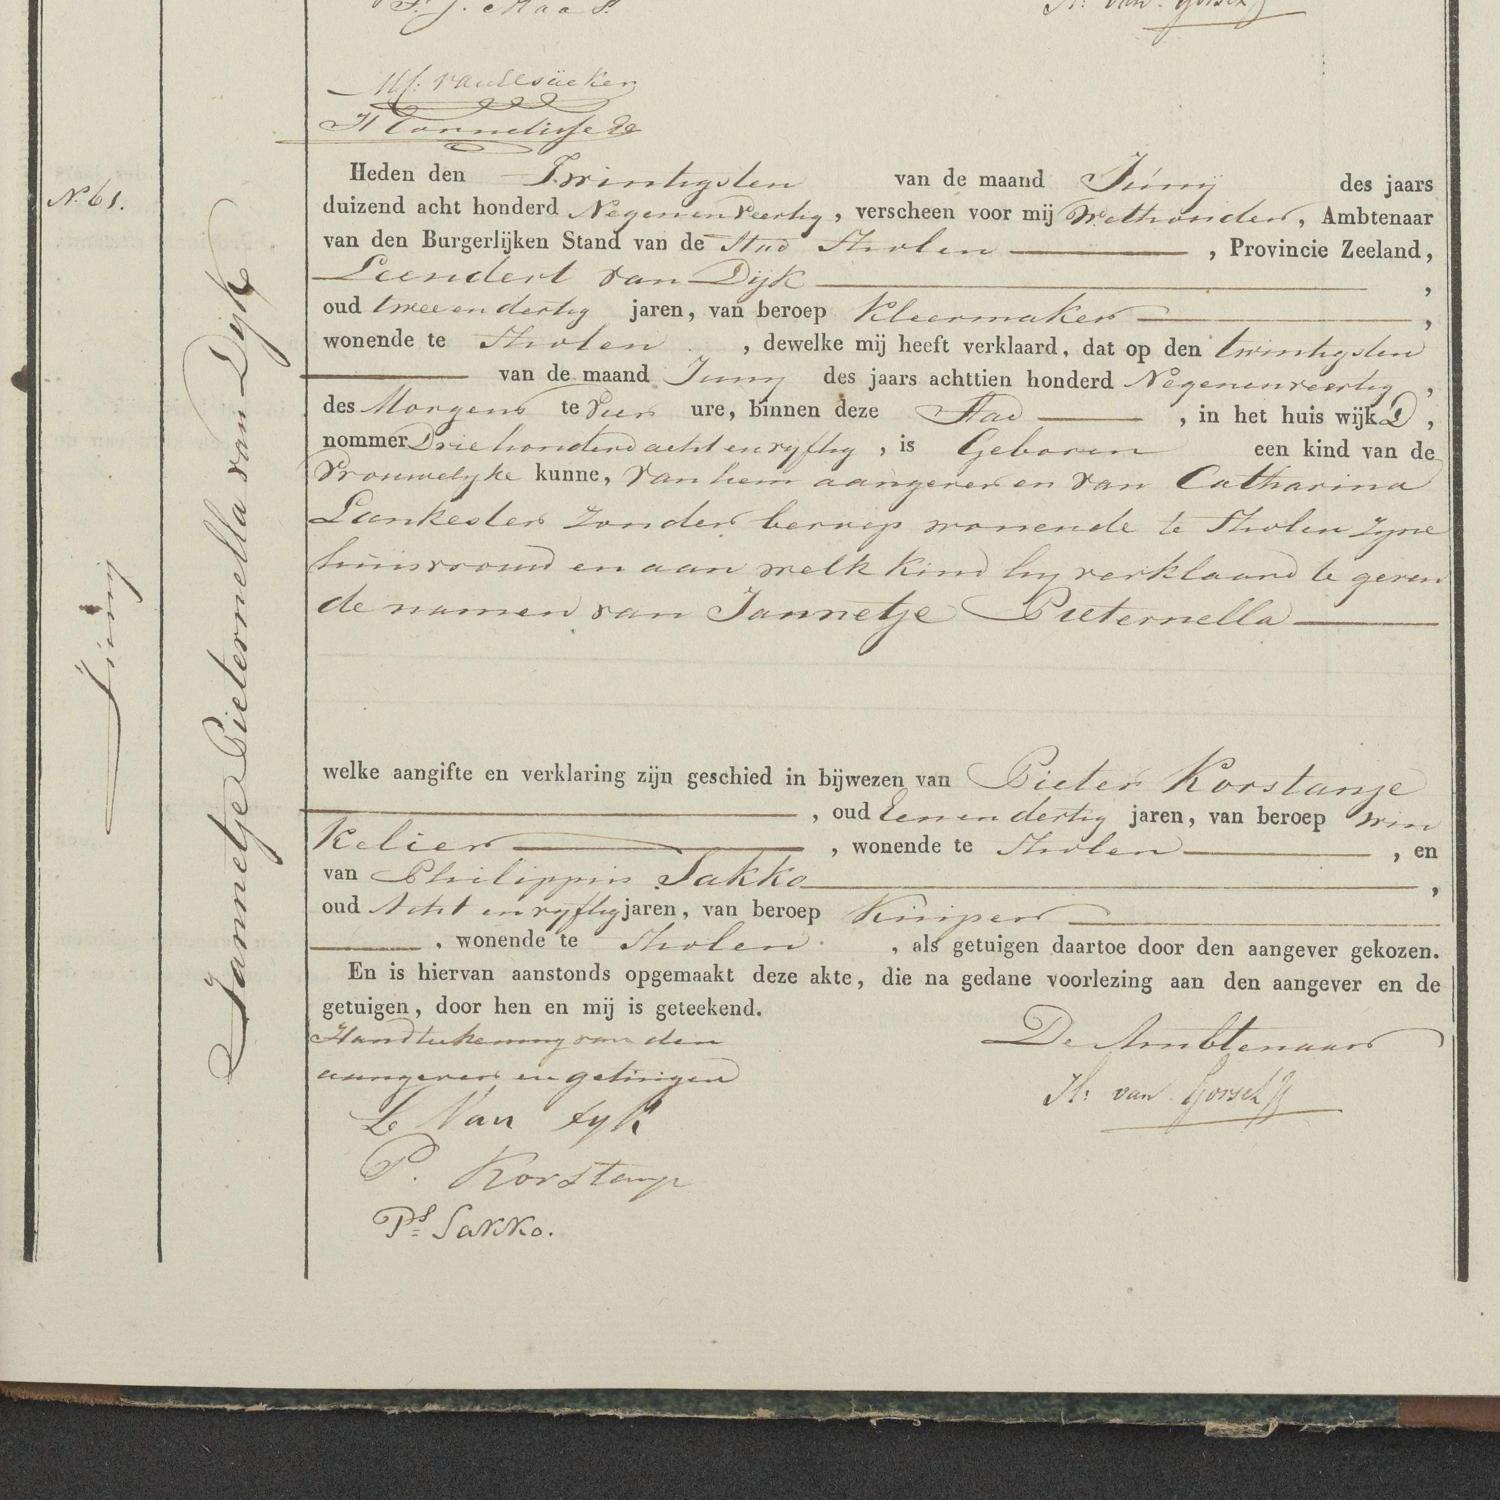 P. J. Maas.
H. van Gorsel
H Cornelisse
No. 61.
Juny
Jannetje Pieternella van Dijk
Heden den Twintigsten van de maand Juny des jaars
duizend acht honderd Negenenveertig, verscheen voor mij Wethouder, Ambtenaar
van den Burgerlijken Stand van de Stad Tholen , Provincie Zeeland,
Leendert van Dijk ,
oud tweeendertig jaren, van beroep Kleermaker ,
wonende te Tholen , dewelke mij heeft verklaard, dat op den twintigsten
van de maand Juny des jaars achttien honderd Negenenveertig ,
des Morgens te Vier ure, binnen deze Stad , in het huis wijk D ,
nommer Driehonderdachtenvyftig , is Geboren een kind van de
Vrouwelyke kunne, van hem aangever en van Catharina
Lankester zonder beroep wonende te Tholen zyne
huisvrouw en aan welk kind hy verklaard te geven
de namen van Jannetje Pieternella
welke aangifte en verklaring zijn geschied in bijwezen van Pieter Korstanje
, oud Eenendertig jaren, van beroep win
kelier , wonende te Tholen , en
van Philippus Sakko ,
oud Achtenvyftig jaren, van beroep Kuiper
, wonende te Tholen , als getuigen daartoe door den aangever gekozen.
En is hiervan aanstonds opgemaakt deze akte, die na gedane voorlezing aan den aangever en de
getuigen, door hen en mij is geteekend.
Handtekening van den
aangever en getuigen
De Ambtenaar
L Van dyk
H. van Gorsel
P. Korstanje
Ps Sakko.